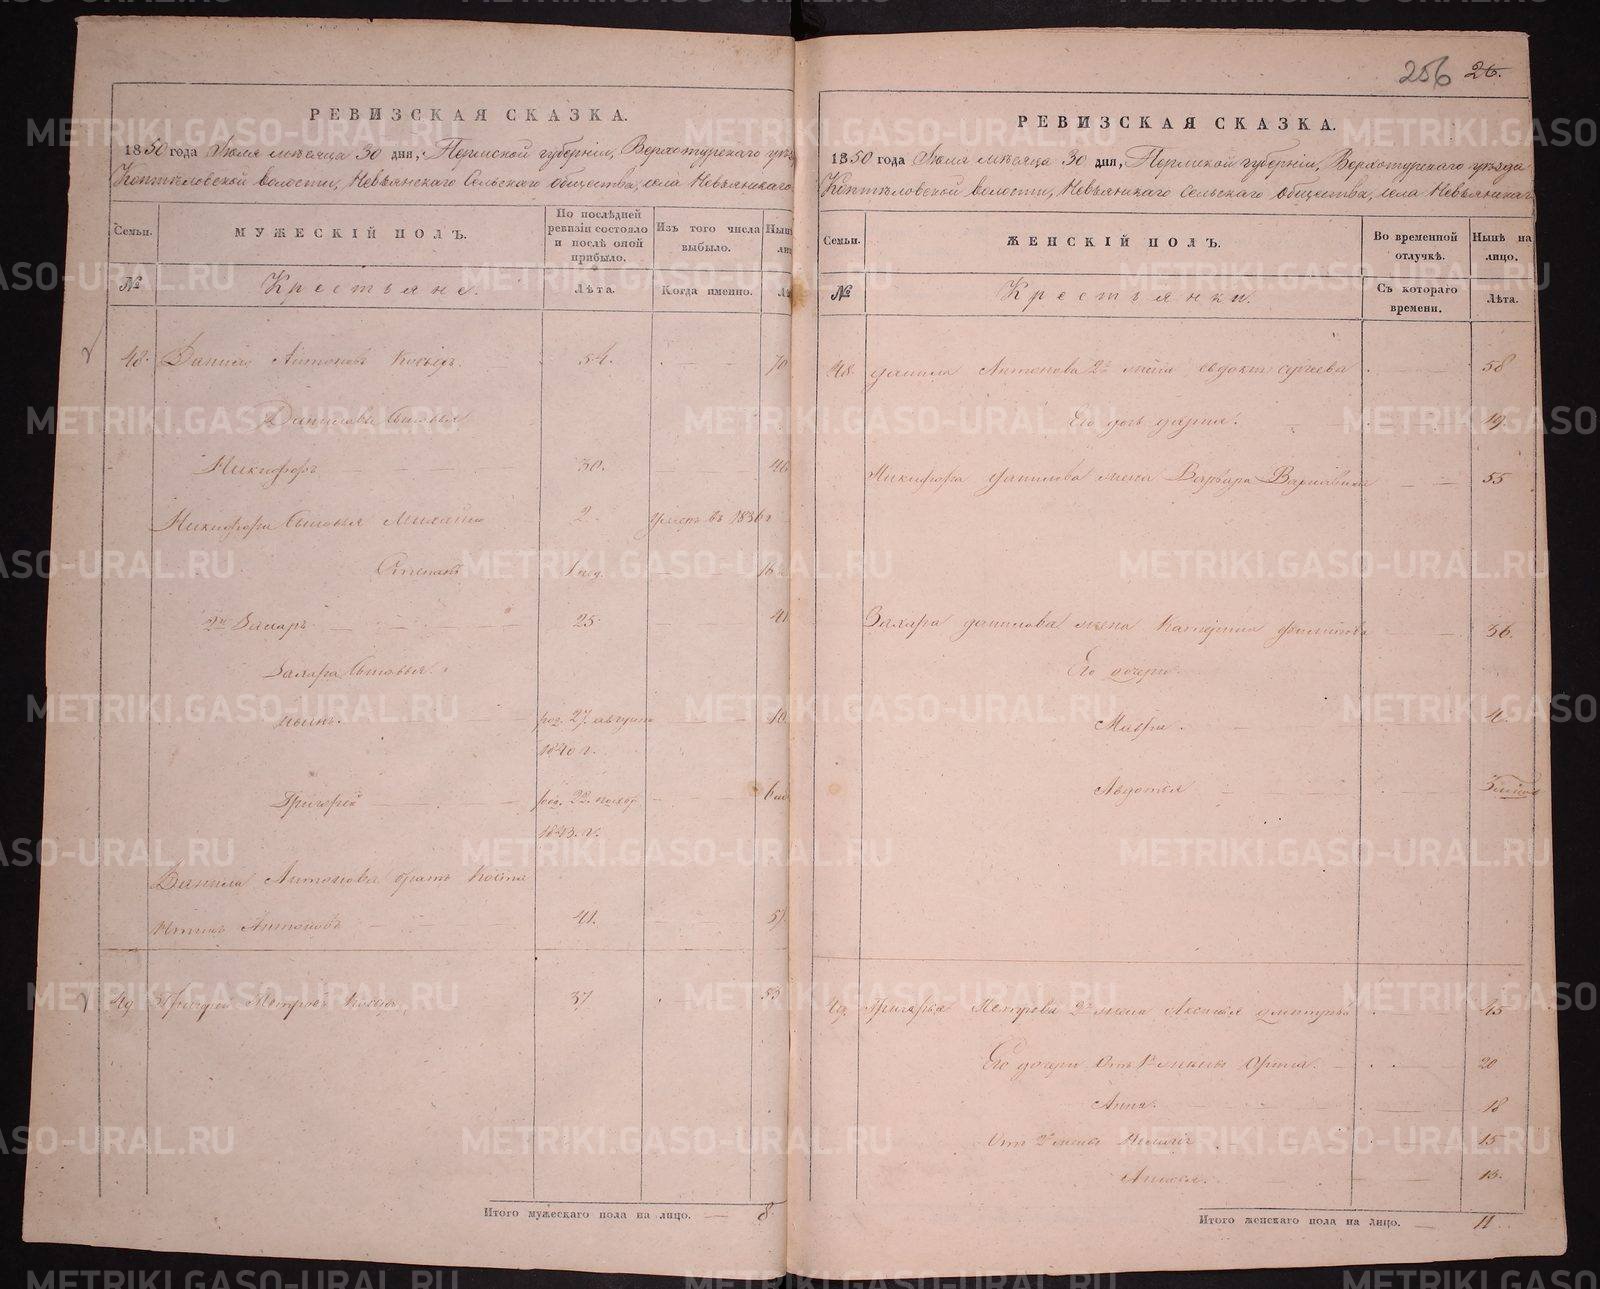 256 26.
РЕВИЗСКАЯ СКАЗКА.
1850 года Іюля мѣсяца 30 дня, Пермской губерніи, Верхотурскаго
Коптѣловской волости, Невьянскаго Сельскаго общества, села Невьянскаго
Семьи.
МУЖЕСКІЙ ПОЛЪ.
По послѣдней ревизіи состояло и послѣ оной прибыло.
Изъ того числа выбыло.
№
Крестьяне.
Лѣта.
Когда именно.
48. Данило Антоновъ 54. 70
Даниловы Сыновья
Никифоръ 30. 46
Никифора Сыновья Михайло 2. умеръ въ 1836 г
Степанъ 1 год. 16
2й Захаръ 25 41
Захара Сыновья.
род. 27 августа 10
1840 г.
Григорей род. 22 6
1843. г.
Данила Антонова братъ
Антоновъ 41. 57
49 Григорей Петровъ 37 53
Итого мужескаго пола на лицо. 8.
РЕВИЗСКАЯ СКАЗКА.
1850 года Іюля мѣсяца 30 дня, Пермской губерніи, Верхотурскаго уѣзда
Коптѣловской волости, Невьянскаго Сельскаго общества, села Невьянскаго
Семьи.
ЖЕНСКІЙ ПОЛЪ.
Во временной отлучкѣ.
Нынѣ на лицо.
№
Крестьянки.
Съ котораго времени.
Лѣта.
48. Данила Антонова 2я жена Сергеева 58
Его дочь Дарья. 19.
Никифора Данилова жена Варвара 55
Захара Данилова жена Катерина 36.
Его дочери
Мавра. 4.
Авдотья
49. Григорья Петрова 2я жена Аксинья 45
Его дочери Отъ 1й жены 20
Анна. 18
Отъ 2й жены 15
13.
Итого женскаго пола на лицо. 11
METRIKI.GASO-URAL.RU